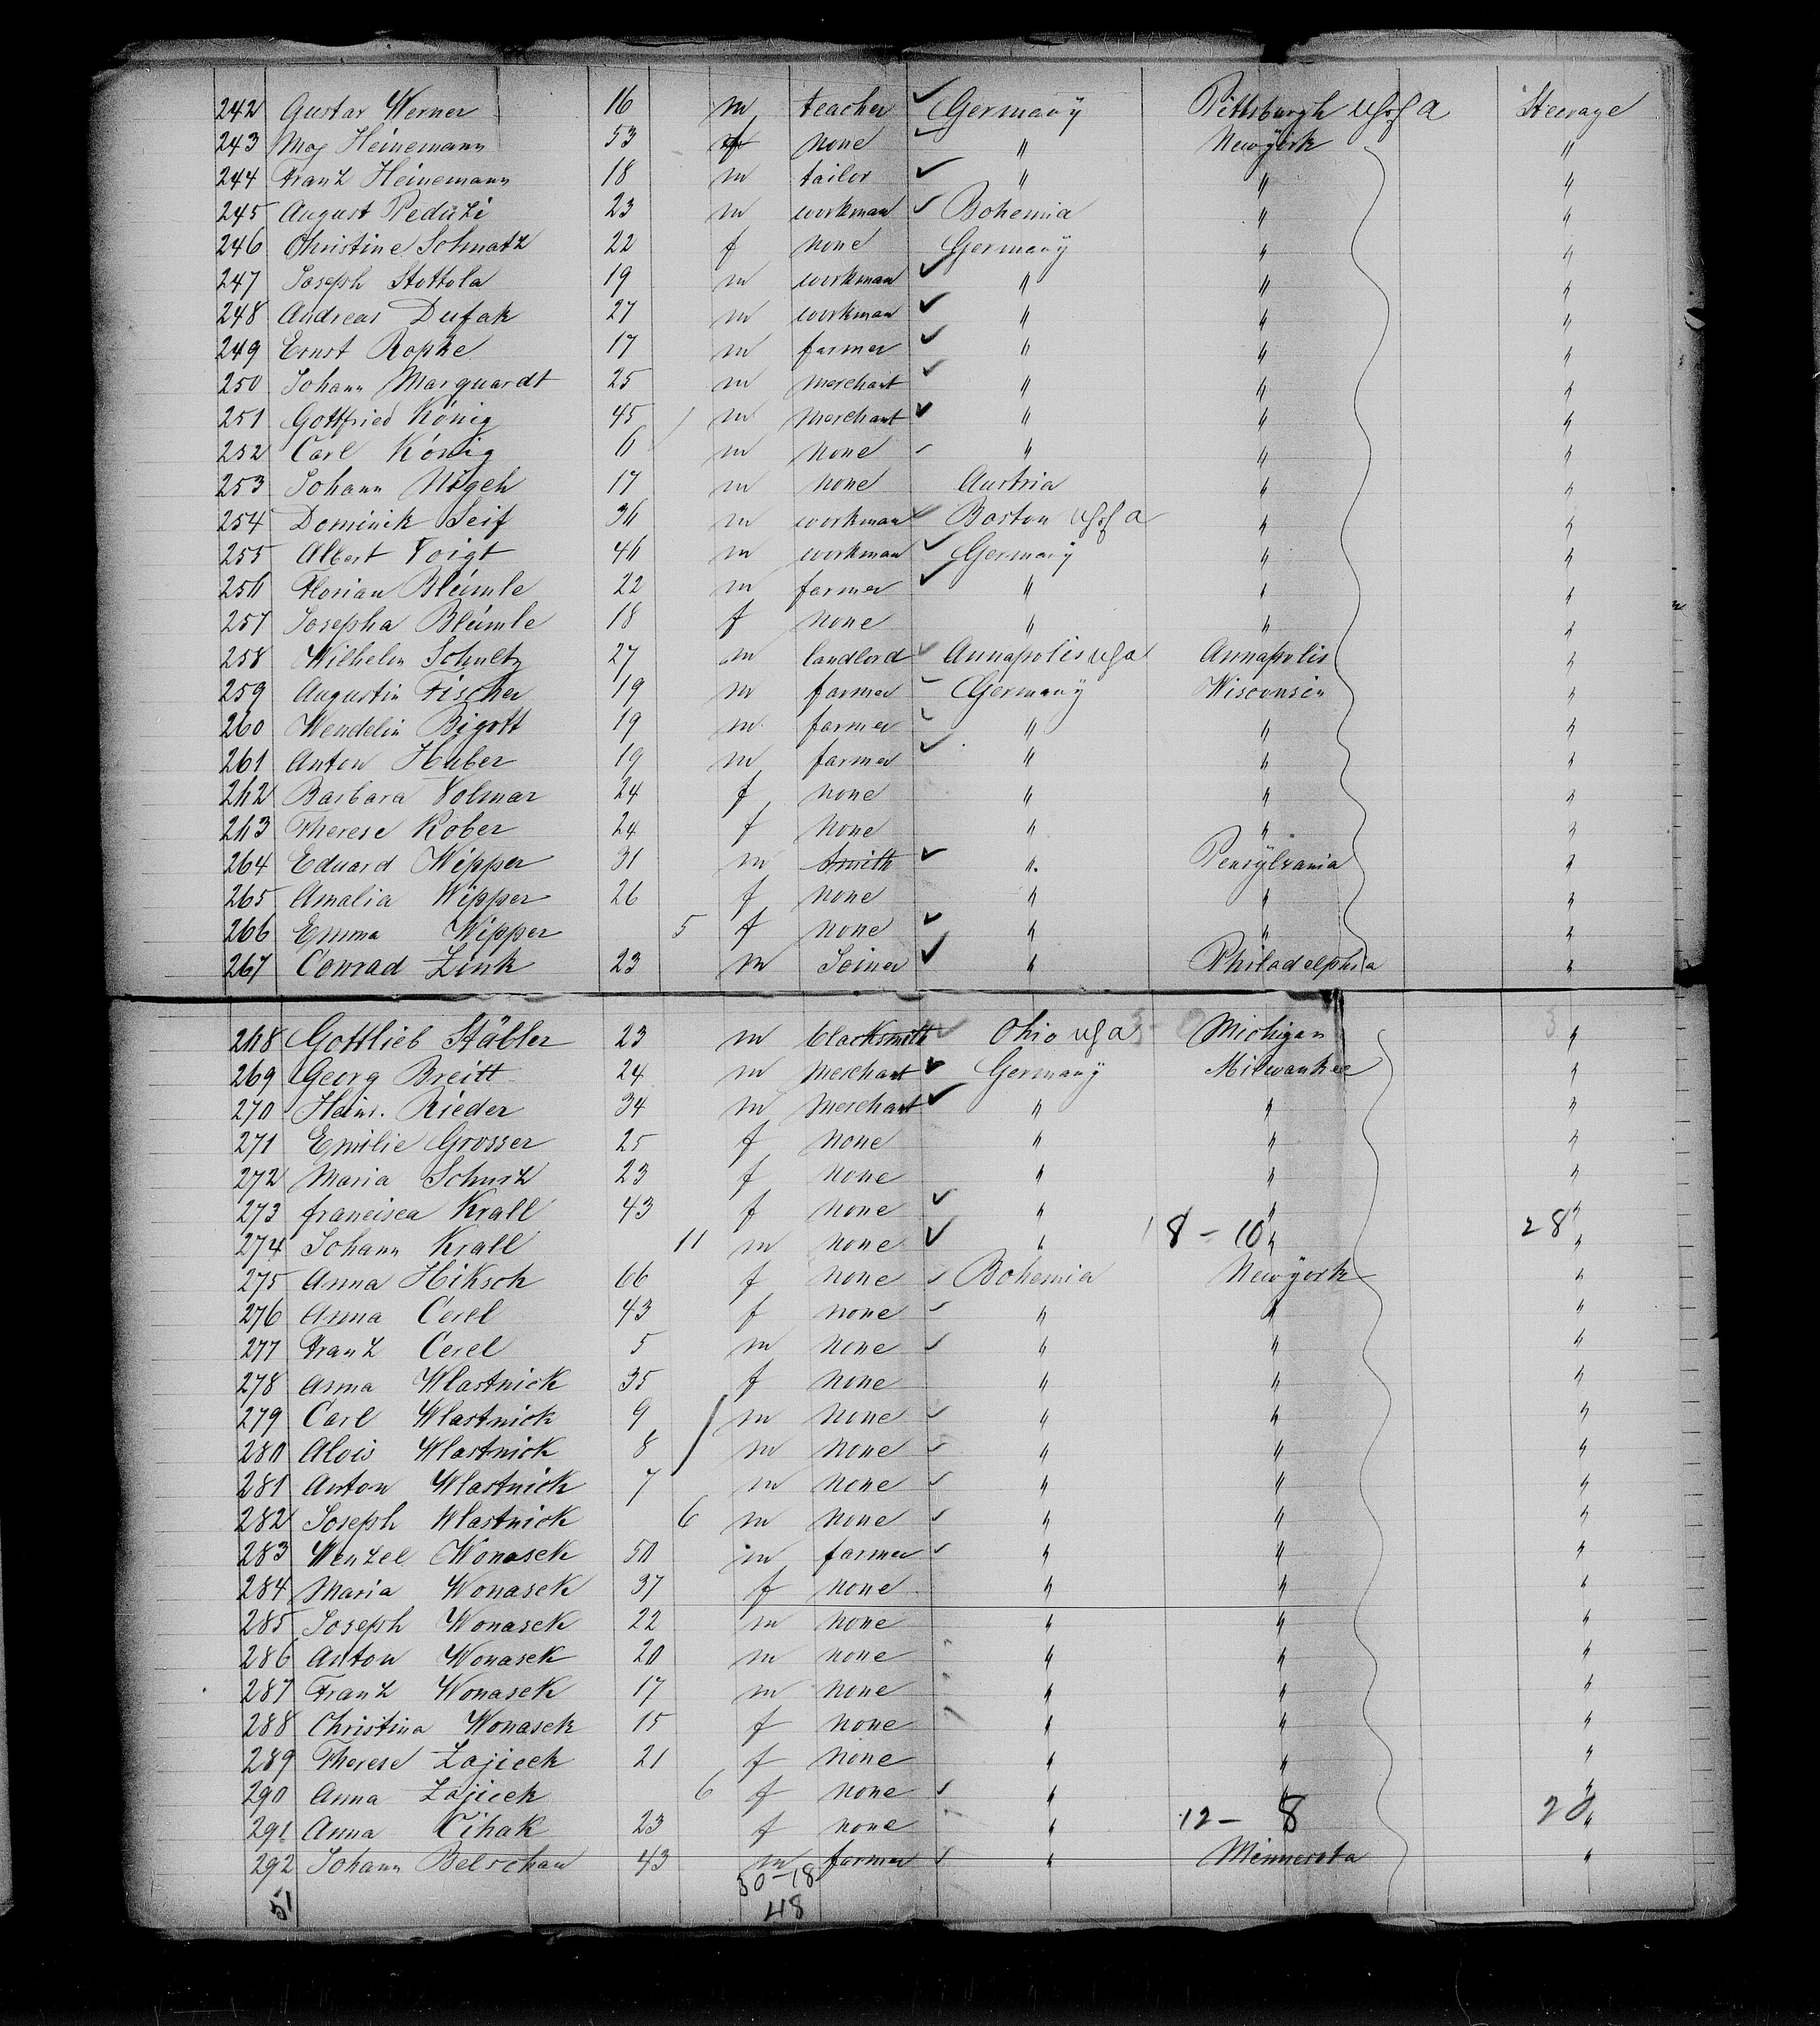 242 Gustav Werner 16 m teacher ✓ Germany Pittsburgh USofA Steerage
243 Mag Heinemann 53 f none " Newyork "
244 Franz Heinemann 18 m tailor ✓ " " "
245 August Peduzi 23 m workman ✓ Bohemia " "
246 Christine Schnatz 22 f none Germany " "
247 Joseph Stottola 19 m workman ✓ " " "
248 Andreas Dufak 27 m workman ✓ " " "
249 Ernst Ropke 17 m farmer ✓ " " "
250 Johann Marquardt 25 m merchant ✓ " " "
251 Gottfried König 45 m merchant ✓ " " "
252 Carl König 6 m none ✓ " " "
253 Johann 17 m none Austria " "
254 Dominick Seif 36 m workman ✓ Boston USofA " "
255 Albert Voigt 46 m workman ✓ Germany " "
256 Florian Blümle 22 m farmer ✓ " " "
257 Josepha Blümle 18 f none " " "
258 Wilhelm Schultz 27 m landlord ✓ Annapolis USA Annapolis "
259 Augustin Fischer 19 m farmer ✓ Germany Wisconsin "
260 Wendelin Bigott 19 m farmer ✓ " " "
261 Anton Huber 19 m farmer ✓ " " "
262 Barbara Volmar 24 f none " " "
263 Therese Kober 24 f none " " "
264 Eduard Wipper 31 m smith ✓ " Pensylvania "
265 Amalia Wipper 26 f none " " "
266 Emma Wipper 5 f none ✓ " " "
267 Conrad Zink 23 m Joiner ✓ " Philadelphia "
268 Gottlieb Stäbler 23 m blacksmith ✓ Ohio USA Michigan "
269 Georg Breitt 24 m merchant ✓ Germany Milwaukee "
270 Heinr. Rieder 34 m merchant ✓ " " "
271 Emilie Grosser 25 f none " " "
272 Maria Schurz 23 f none " " "
273 francisca Krall 43 f none ✓ " " "
274 Johann Krall 11 m none ✓ " 18-10 " 28 "
275 Anna Hiksch 66 f none ✓ Bohemia Newyork "
276 Anna Cerel 43 f none ✓ " " "
277 Franz Cerel 5 m none ✓ " " "
278 Anna Wlastnick 35 f none " " "
279 Carl Wlastnick 9 m none ✓ " " "
280 Alois Wlastnick 8 m none ✓ " " "
281 Anton Wlastnick 7 m none ✓ " " "
282 Joseph Wlastnick 6 m none ✓ " " "
283 Wenzel Wonasek 50 m farmer ✓ " " "
284 Maria Wonasek 37 f none " " "
285 Joseph Wonasek 22 m none " " "
286 Anton Wonasek 20 m none " " "
287 Franz Wonasek 17 m none " " "
288 Christina Wonasek 15 f none " " "
289 Therese Zajicek 21 f none " " "
290 Anna Zajicek 6 f none ✓ " " "
291 Anna Cihak 23 f none " 12-8 20 "
292 Johann Belschan 43 m farmer ✓ " Minnesota "
30-18
51 48